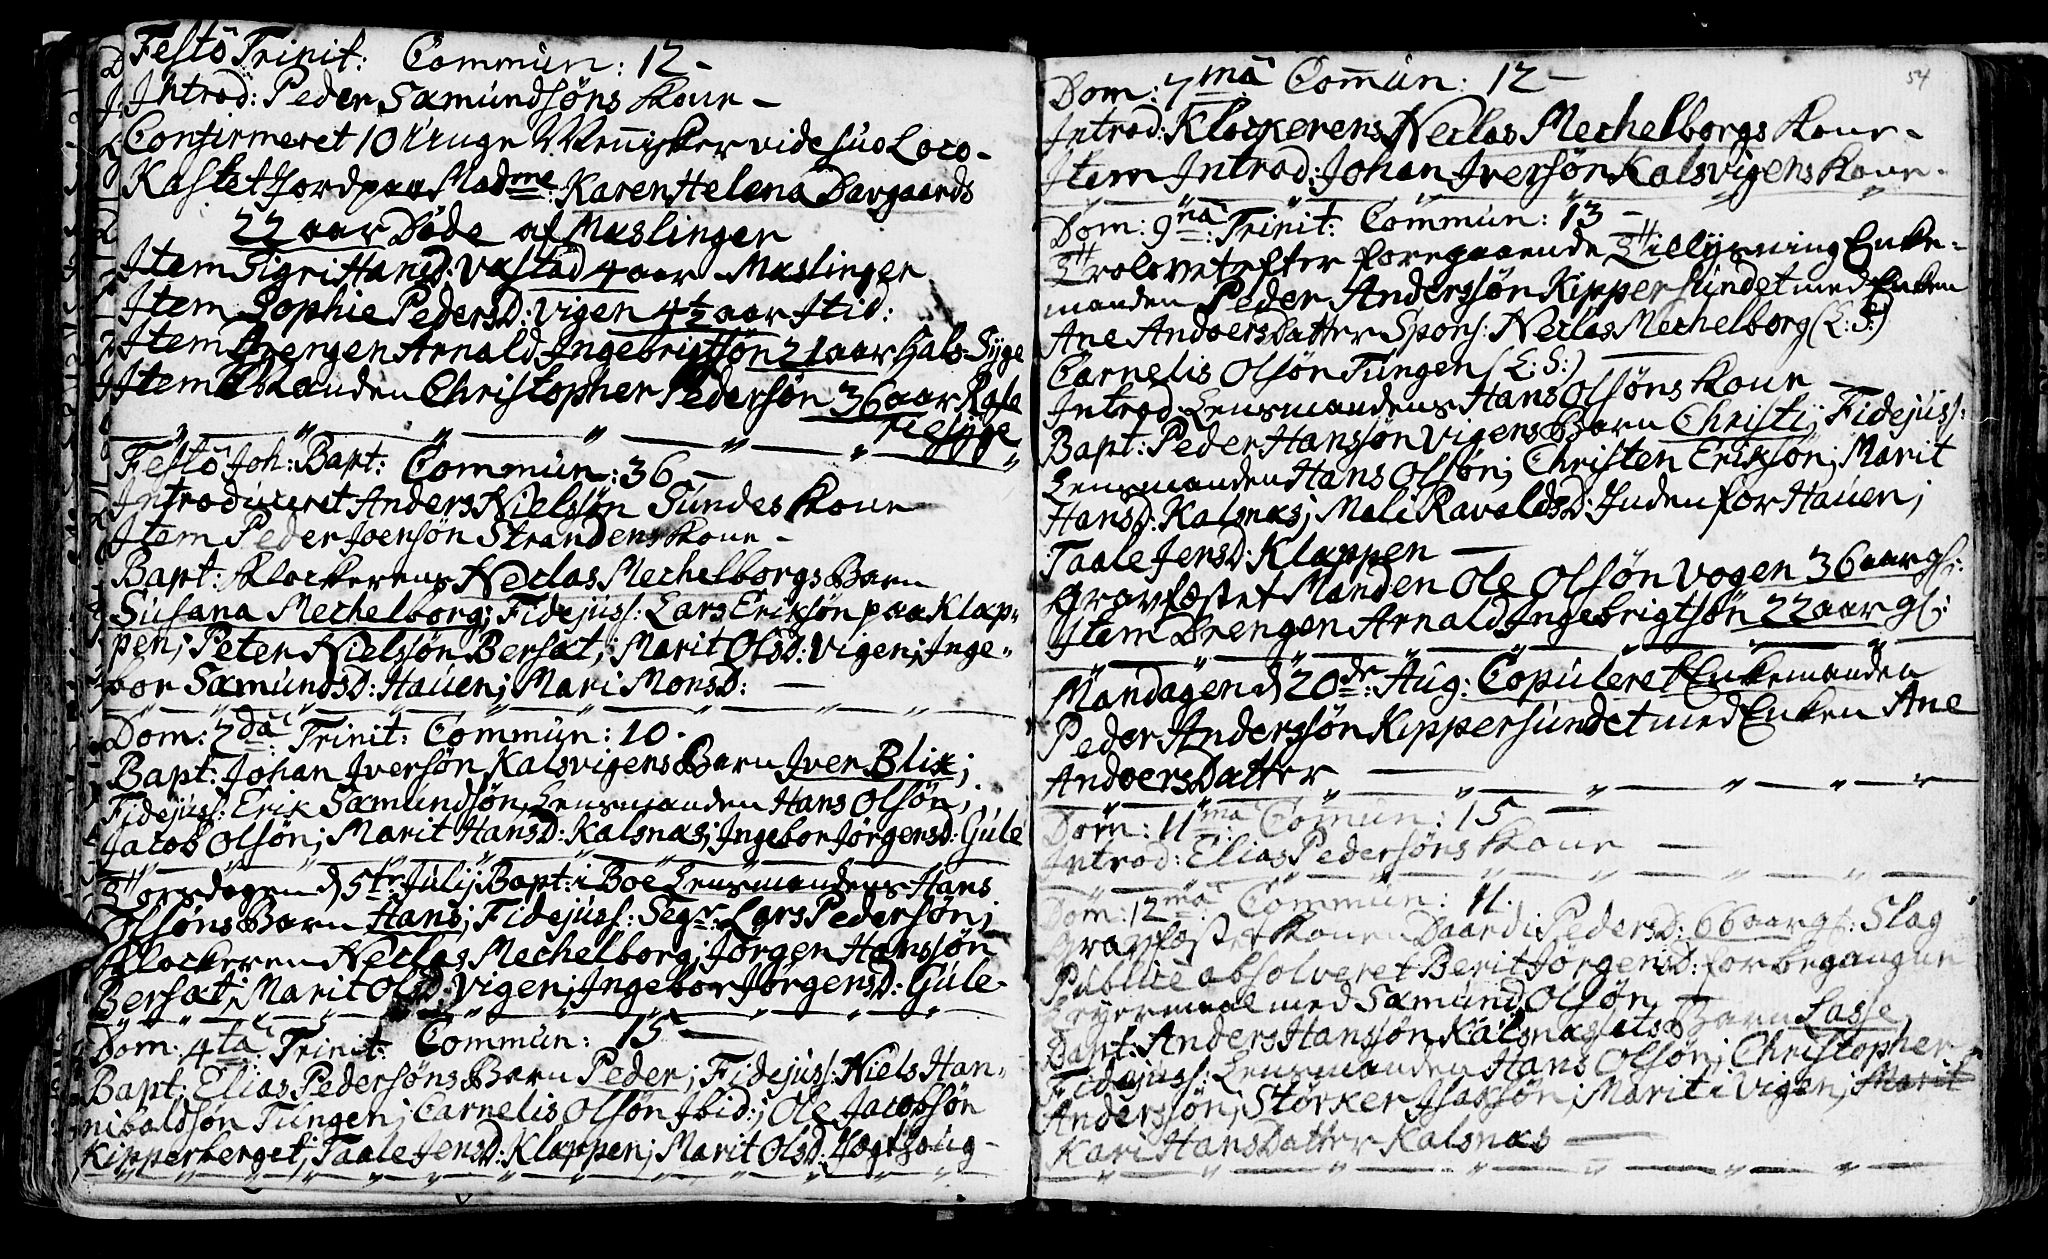 Festô Trinit: Commun: 12 –
Introd: Peder Sæmundsöns Kone –
Confirmeret 10 Unge Mennisker vide suo Loco –
Kastet Jord paa Madme: Karen Helena Davgaards
22 aar Döde af Mæslinger
Item Sigri Hansd: Vastad 4 aar Mæslinger
Item Sophie Pedersd: Vigen 4½ aar Itid:
Item Drengen Arnald Ingebrigtsön 21 aar Hals-Syge
Item Manden Christopher Pedersön 36 aar
Festô Joh: Bapt: Commun: 36 –
Introduceret Anders Nielsön Sundes Kone
Item Peder Joensön Strandens Kone –
Bapt: Klockerens Neclas Mechelborgs Barn
Susana Mechelborg; Fidejuss: Lars Eriksön paa Klap-
pen; Peter Nielssön Bersæt; Marit Olsd: Vigen; Inge-
bor Sæmundsd: Hauen; Mari Monsd: –
Dom: 2da Trinit: Commun: 10.
Bapt: Johan Iversön Kalsvigens Barn Iver Blix;
Fidejuss: Erik Sæmundsön, Lensmanden Hans Olsön;
Jacob Olsön; Marit Hansd: Kalsnæs; Ingebor Jörgensd: Gule
Torsdagen d 5te Julij Bapt: i Boe Lensmandens Hans
Olsöns Barn Hans; Fidejuss: Segr: Lars Pedersön;
Klockeren Neclas Mechelborg; Jörgen Hanssön
Bersæt; Marit Olsd: Vigen; Ingebor Jörgensd: Gule –
Dom: 4ta Trinit: Commun: 15 –
Bapt: Elias Pedersöns Barn Peder; Fidejuss: Niels Han-
nibaldsön Tungen; Carnelis Olsön Ibid:; Ole Jacobsön
Kipperberget; Taale Jensd: Klappen; Marit Olsd: Hogshoug –
54
Dom: 7ma Comun: 12 –
Introd: Klockerens Neclas Mechelborgs Kone –
Item Introd: Johan Iversön Kalsvigens Kone –
Dom: 9na: Trinit: Commun: 13 –
Trolovet efter foregaaende Tillysning Enke-
manden Peder Anderssön Kippersundet med Enken
Ane Andoersdatter Spons: Neclas Mechelborg (L: S:)
Carnelis Olsön Tungen (L: S:)
Introd: Lensmandens Hans Olsöns Kone –
Bapt: Peder Hanssön Vigens Barn Christi; Fidejuss:
Lensmanden Hans Olsön; Christen Eriksön; Marit
Hansd: Kalsnæs; Mali Ravaldsd: Inden for Hauen;
Taale Jensd: Klappen –
Gravfæstet Manden Ole Olsön Vogen 36 aar gl:
Item Drengen Arnald Ingebrigtsön 22 aar gl:
Mandagen d 20de: Aug: Copuleret Enkemanden
Peder Anderssön Kippersundet med Enken Ane
Andoersdatter –
Dom: 11ma Comun: 15 –
Introd: Elias Pedersöns Kone –
Dom: 12ma Commun: 11.
Gravfæstet Konen Daardi Pedersd: 66 aar gl: Slag
Publice absolveret Berit Jörgensd: for begangen
Leyermaal med Sæmund Olsön –
Bapt: Anders Hanssön Kalsnæslets Barn Lasse
Fidejuss: Lensmanden Hans Olsön; Christopher
Anderssön; Störker Isacsön; Marit i Vigen; Marit
Kari Hansdatter Kalsnæs –